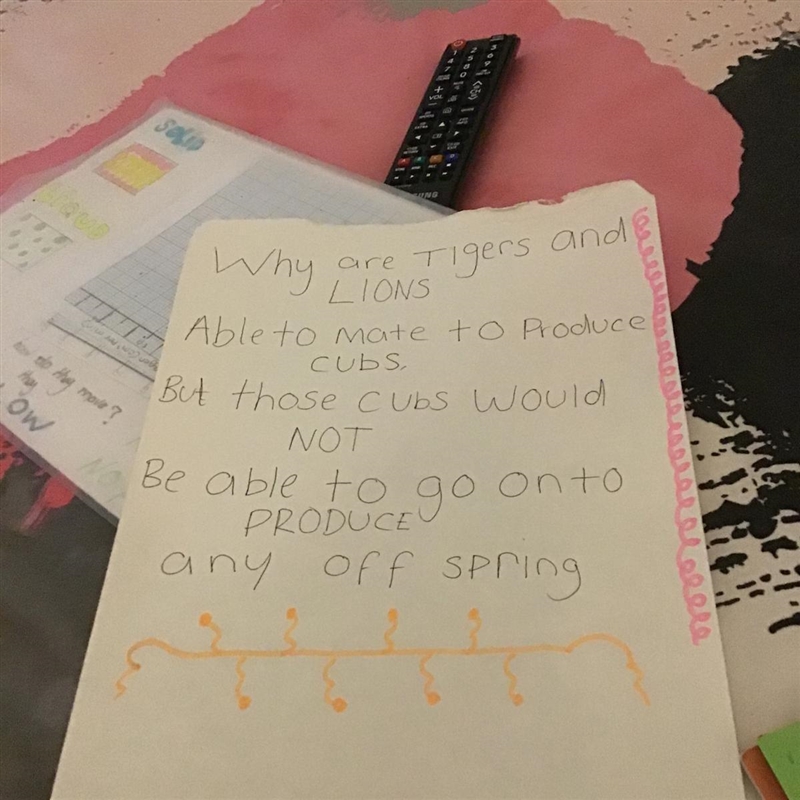 Why are Tigers and
LIONS
Able to mate to Produce
cubs.
But those cubs would
NOT
Be able to go onto
PRODUCE
any off spring
SOLID
how do they move?
OW
VOL